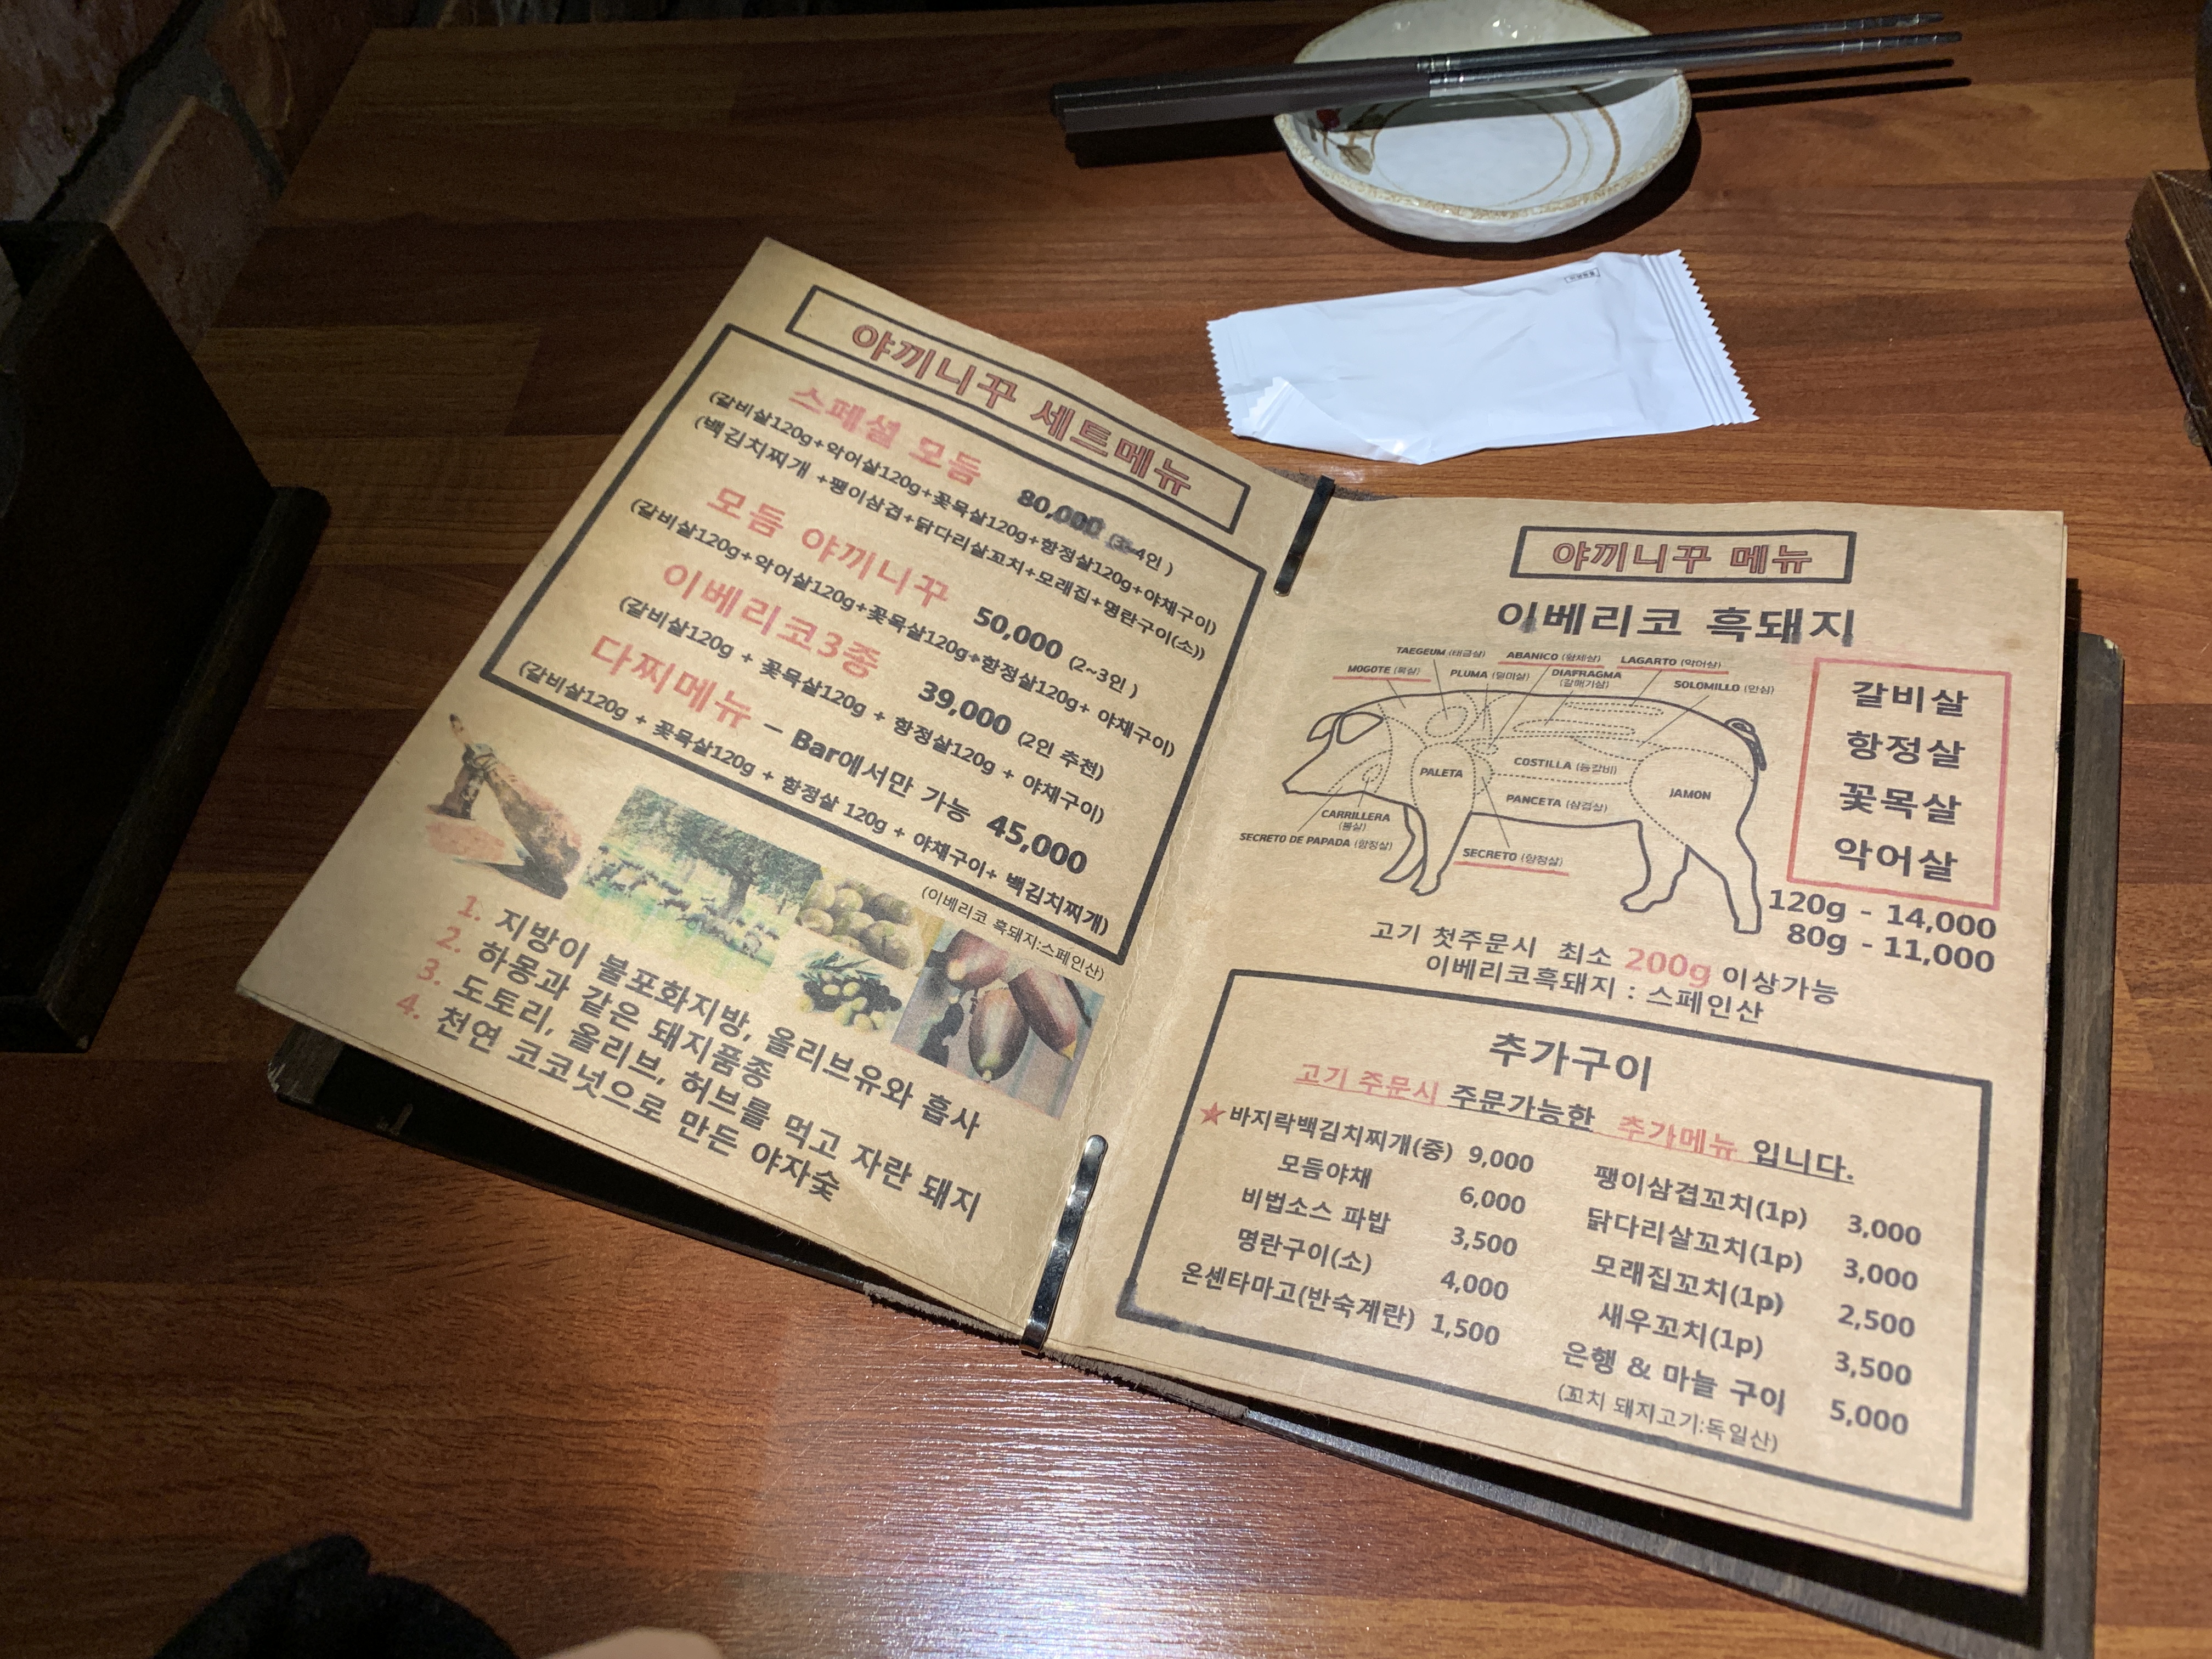 야끼니꾸 세트메뉴
스페셜 모듬 80,000 (3~4인)
(갈비살120g+악어살120g+꽃목살120g+항정살120g+야채구이)
(백김치찌개 +팽이삼겹+닭다리살꼬치+모래집+명란구이(소))
모듬 야끼니꾸 50,000 (2~3인)
(갈비살120g+악어살120g+꽃목살120g+항정살120g+ 야채구이)
이베리코3종 39,000 (2인 추천)
(갈비살120g + 꽃목살120g + 항정살120g + 야채구이)
다찌메뉴 - Bar에서만 가능 45,000
(갈비살120g + 꽃목살120g + 항정살 120g + 야채구이+ 백김치찌개)
(이베리코 흑돼지:스페인산)
1. 지방이 불포화지방, 올리브유와 흡사
2. 하몽과 같은 돼지품종
3. 도토리, 올리브, 허브를 먹고 자란 돼지
4. 천연 코코넛으로 만든 야자숯
야끼니꾸 메뉴
이베리코 흑돼지
TAEGEUM (태금살)
ABANICO (황제살)
LAGARTO (악어살)
MOGOTE (목살)
PLUMA (덜미살)
DIAFRAGMA
(갈매기살)
SOLOMILLO (안심)
PALETA
COSTILLA (등갈비)
JAMON
PANCETA (삼겹살)
CARRILLERA
(볼살)
SECRETO DE PAPADA (항정살)
SECRETO (항정살)
갈비살
항정살
꽃목살
악어살
120g - 14,000
80g - 11,000
고기 첫주문시 최소 200g 이상가능
이베리코흑돼지 : 스페인산
추가구이
고기 주문시 주문가능한 추가메뉴 입니다.
★바지락백김치찌개(중) 9,000
모듬야채 6,000
비법소스 파밥 3,500
명란구이(소) 4,000
온센타마고(반숙계란) 1,500
팽이삼겹꼬치(1p) 3,000
닭다리살꼬치(1p) 3,000
모래집꼬치(1p) 2,500
새우꼬치(1p) 3,500
은행 & 마늘 구이 5,000
(꼬치 돼지고기:독일산)